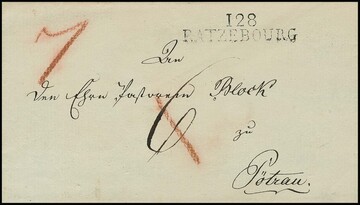 7
128
RATZEBOURG
An
den Ehrn Pastoren Block
6
zu
Pötrau.